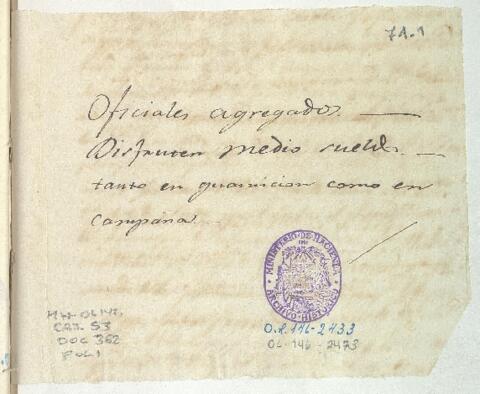 71.1
Oficiales agregados. —
Disfruten medio sueldo. —
tanto en guarnicion como en
campaña.
MINISTERIO-DE-HACIENDA
ARCHIVO-HISTORICO
O.L 146-2433
OL-146-2473
CAJ. 53
DOC 362
FOL 1